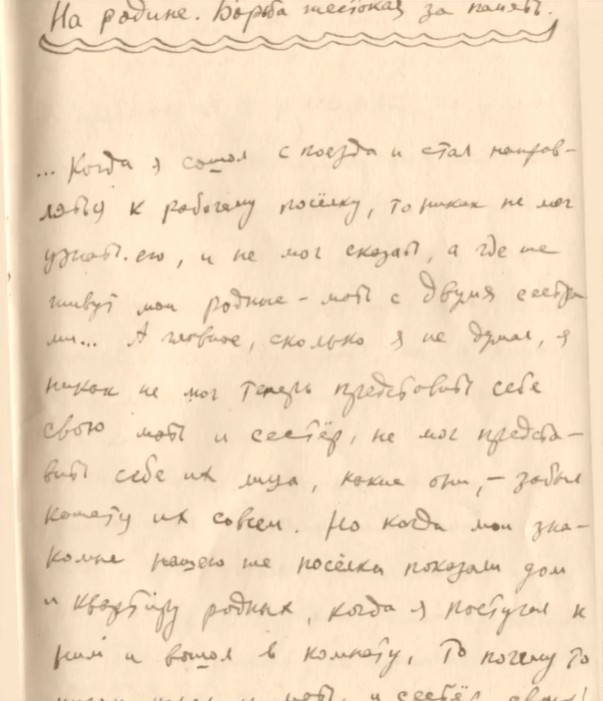 На родине. Борьба жестокая за память.
... Когда я сошол с поезда и стал направ-
ляться к рабочему посёлку, то никак не мог
узнать его, и не мог сказать, а где же
живут мои родные - мать с двумя сестра
ми... А главное, сколько я не думал, я
никак не мог теперь представить себе
свою мать и сестёр, не мог предста-
вить себе их лица, какие они, - забыл
комету их совсем. Но когда мои зна-
комые нашего же посёлка показали дом
и квартиру родных, когда я постучал к
ним и вошол в комнату, то почему то
мать и сестёр своих!